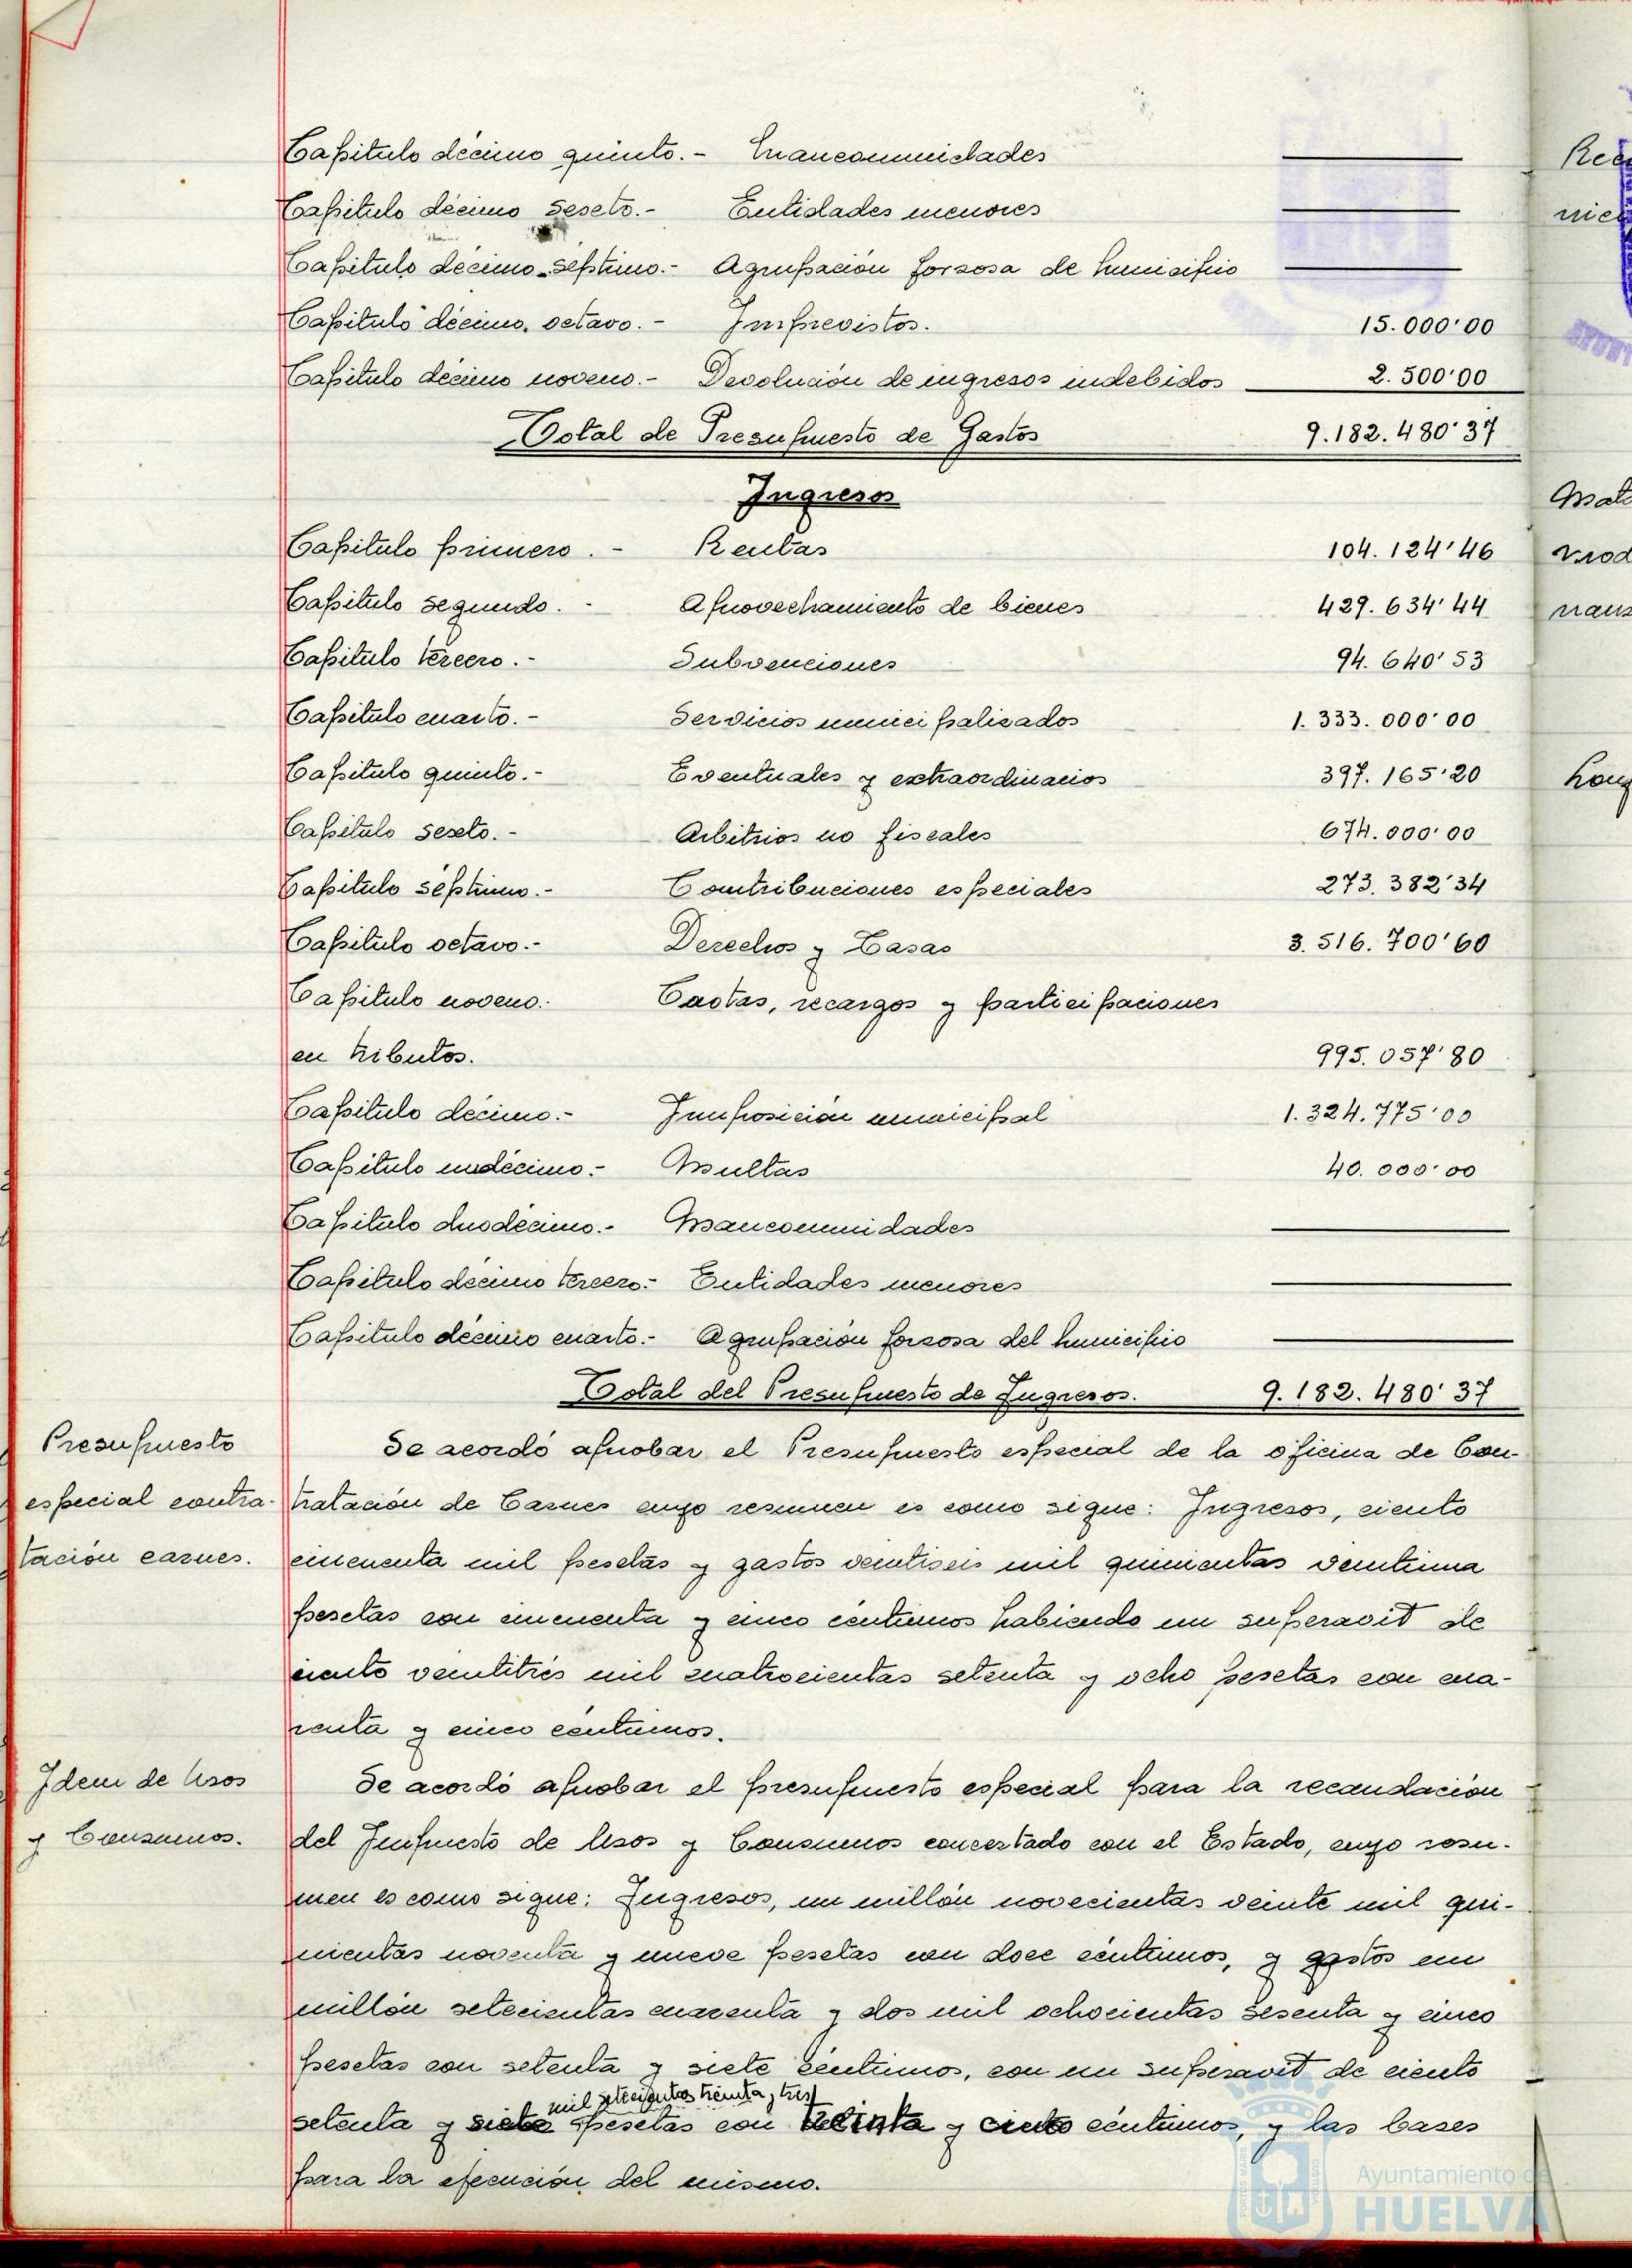 Capitulo décimo quinto.- Mancomunidades ———
Capitulo décimo sesxto.- Entidades menores ———
Capitulo décimo septimo.- Agrupación forzosa de Municipio ———
Capitulo décimo octavo.- Imprevistos. 15.000'00
Capitulo décimo noveno.- Devolución de ingresos indebidos 2.500'00
Total de Presupuesto de Gastos 9.182.480'37
Ingresos
Capitulo primero.- Rentas 104.124'46
Capitulo segundo.- Aprovechamiento de bienes 429.634'44
Capitulo tercero.- Subvenciones 94.640'53
Capitulo cuarto.- Servicios municipalizados 1.333.000'00
Capitulo quinto.- Eventuales y extraordinarios 397.165'20
Capitulo sexto.- Arbitrios no fiscales 674.000'00
Capitulo séptimo.- Contribuciones especiales 273.382'34
Capitulo octavo.- Derechos y Tasas 3.516.700'60
Capitulo noveno.- Cuotas, recargos y participaciones
en tributos. 995.057'80
Capitulo décimo.- Imposición municipal 1.324.775'00
Capitulo undécimo.- Multas 40.000'00
Capitulo duodécimo.- Mancomunidades ———
Capitulo décimo tercero.- Entidades menores ———
Capitulo décimo cuarto.- Agrupación forzosa del Municipio ———
Total del Presupuesto de Ingresos. 9.182.480'37
Presupuesto
especial contra-
tación carnes.
Se acordó aprobar el Presupuesto especial de la oficina de Con-
tratación de Carnes cuyo resumen es como sigue: Ingresos, ciento
cincuenta mil pesetas y gastos veintiseis mil quinientas veintiuna
pesetas con cincuenta y cinco céntimos habiendo un superavit de
ciento veintitrés mil cuatrocientas setenta y ocho pesetas con cua-
renta y cinco céntimos.
Idem de Usos
y Consumos.
Se acordó aprobar el presupuesto especial para la recaudación
del Impuesto de Usos y Consumos concertado con el Estado, cuyo resu-
men es como sigue: Ingresos, un millón novecientas veinte mil qui-
nientas noventa y nueve pesetas con doce céntimos, y gastos un
millón setecientas cuarenta y dos mil ochocientas sesenta y cinco
pesetas con setenta y siete céntimos, con un superavit de ciento
mil setecientas treinta y tres
setenta y siete pesetas con treinta y cinco céntimos, y las bases
para la ejecución del mismo.
Ayuntamiento de
HUELVA